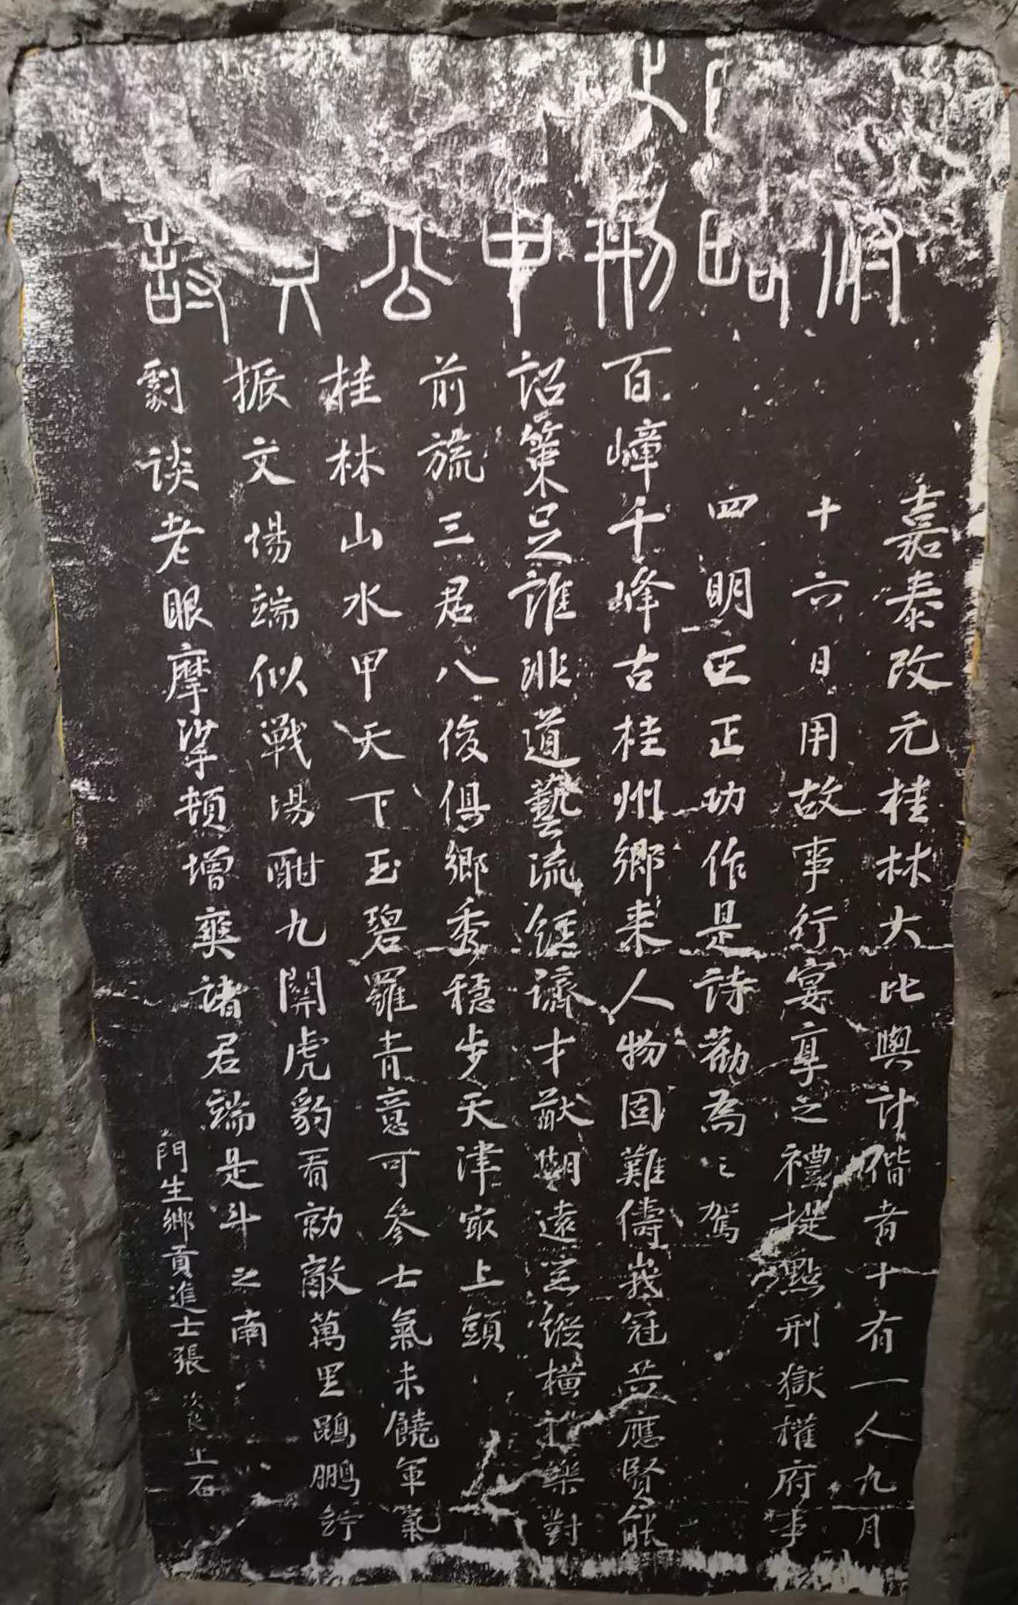 府略刑中公詩
嘉泰改元桂林大比與計偕者十有一人九月
十六日用故事行宴享之禮提點刑獄權府事
四明王正功作是詩勸為之駕
百嶂千峰古桂州鄉來人物固難儔峩冠共應賢能
詔策足誰非道藝流經濟才猷期遠業縱橫禮樂對
前旒三君八俊俱鄉秀穩步天津冣上頭
桂林山水甲天下玉碧羅青意可參士氣未饒軍氣
振文場端似戰場酣九關虎豹看勍敵萬里鵾鵬佇
劇談老眼摩挲頓增爽諸君端是斗之南
門生鄉貢進士張次良上石